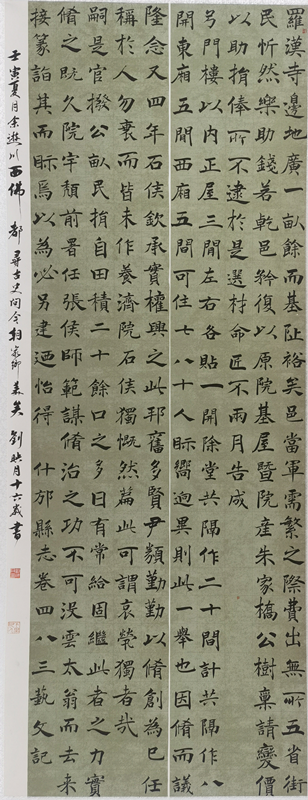 羅漢寺邊地廣一畝餘而基阯裕矣邑當軍需繁之際費出無所五省街
民忻然樂助錢若乾邑復以原院基屋暨院產朱家橋公樹稟請變價
以助捐俸所不逮於是選材命匠不兩月告成
門樓以內正屋三間左右各貼一間除堂共隔作二十間計共隔作八
開東廂五間西廂五間可住七八十人眎嚮迥異則此一舉也因脩而議
隆念又四年石侯欽承實權輿之此邦舊多賢尹類勤勤以脩創為已任
稱於人勿衰而皆未作養濟院石侯獨慨然篇此可謂哀煢獨者哉
嗣是官撥公畝民捐自田積二十餘口之多日有常給固繼此者之力實
脩之旣久院宇頹前署任張侯師範謀脩治之功不可沒雲太翁而去來
接篆詣其而眎焉以為必另建迺怡得 什邡縣志卷四八三藝文記
壬寅夏月余遊川西佛都尋古史問今朝家鄉美矣 劉映月十六歲書